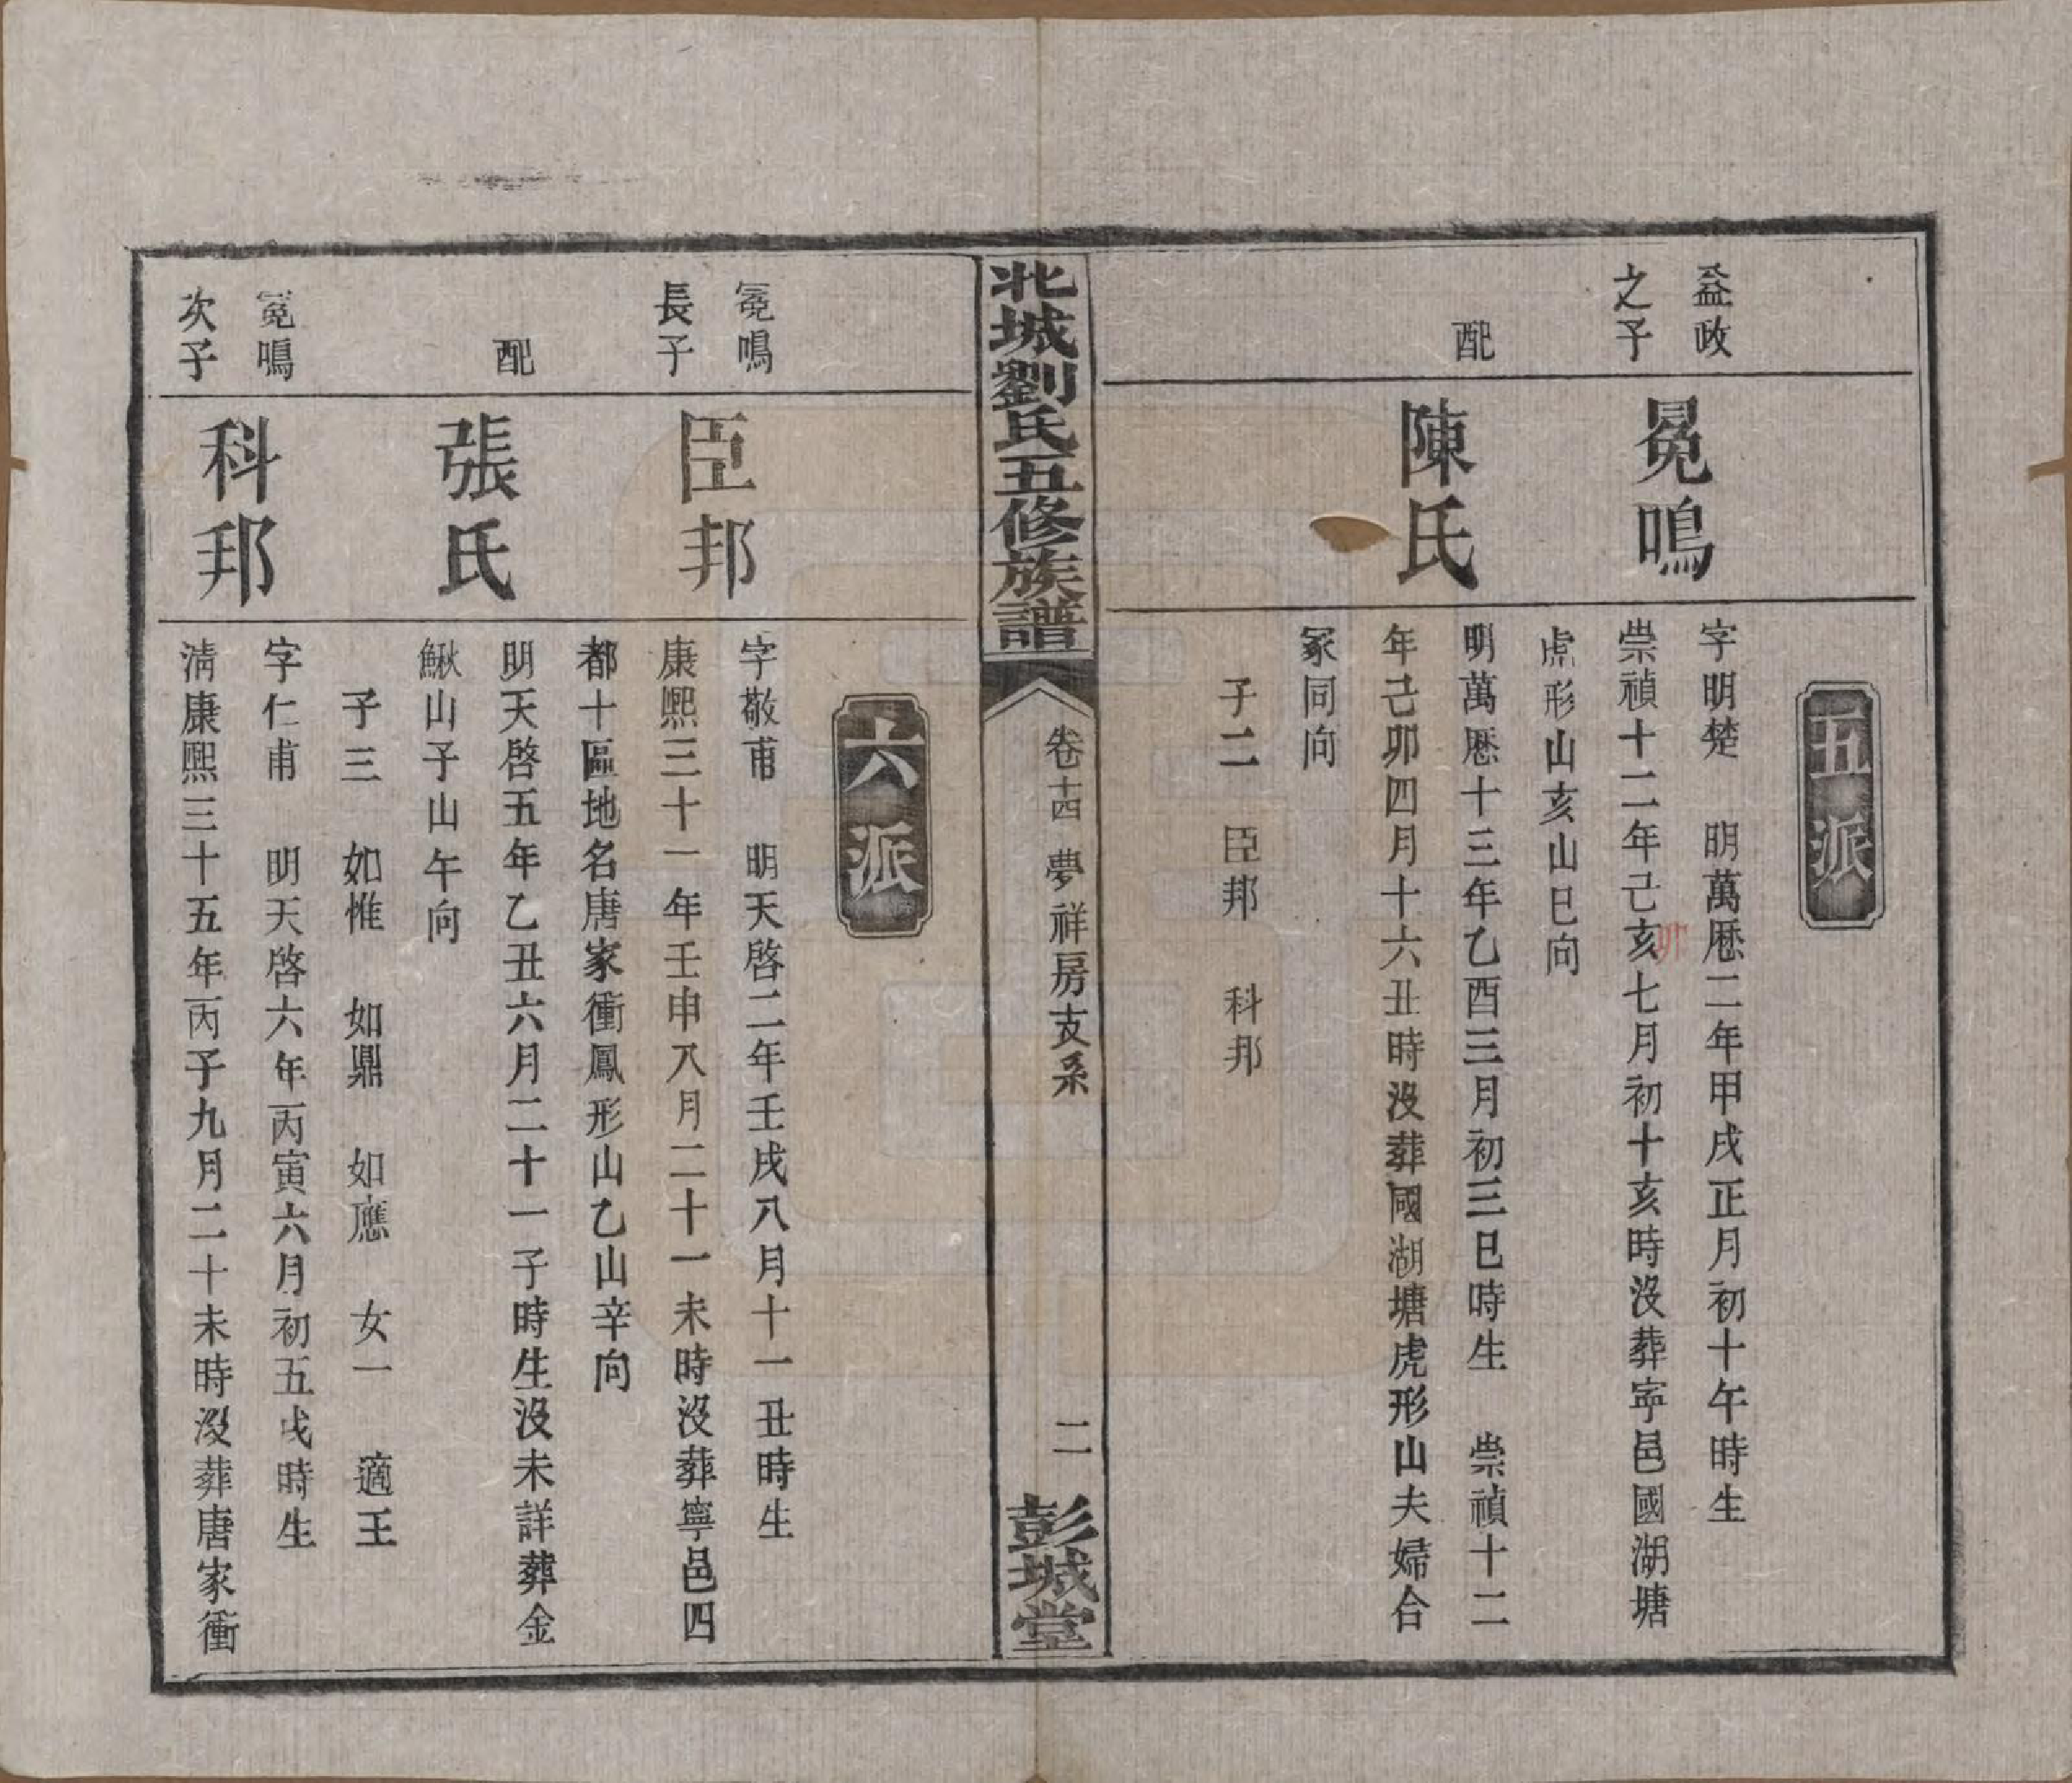 五派
益政
之子
冕鳴
字明楚 明萬厯二年甲戌正月初十午時生
崇禎十二年己亥七月初十亥時沒葬寜邑國湖塘
虎形山亥山巳向
配
陳氏
明萬厯十三年乙酉三月初三巳時生 崇禎十二
年己卯四月十六丑時沒葬國湖塘虎形山夫婦合
冢同向
子二 臣邦 科邦
北城劉氏五修族譜
卷十四 夢祥房支系
二
彭城堂
六派
冕鳴
長子
臣邦
字敬甫 明天啓二年壬戌八月十一丑時生
康熙三十一年壬申八月二十一未時沒葬寧邑四
都十區地名唐家衝鳳形山乙山辛向
配
張氏
明天啓五年乙丑六月二十一子時生沒未詳葬金
鰍山子山午向
子三 如惟 如鼎 如應 女一 適王
冕鳴
次子
科邦
字仁甫 明天啓六年丙寅六月初五戌時生
淸康熙三十五年丙子九月二十未時沒葬唐家衝